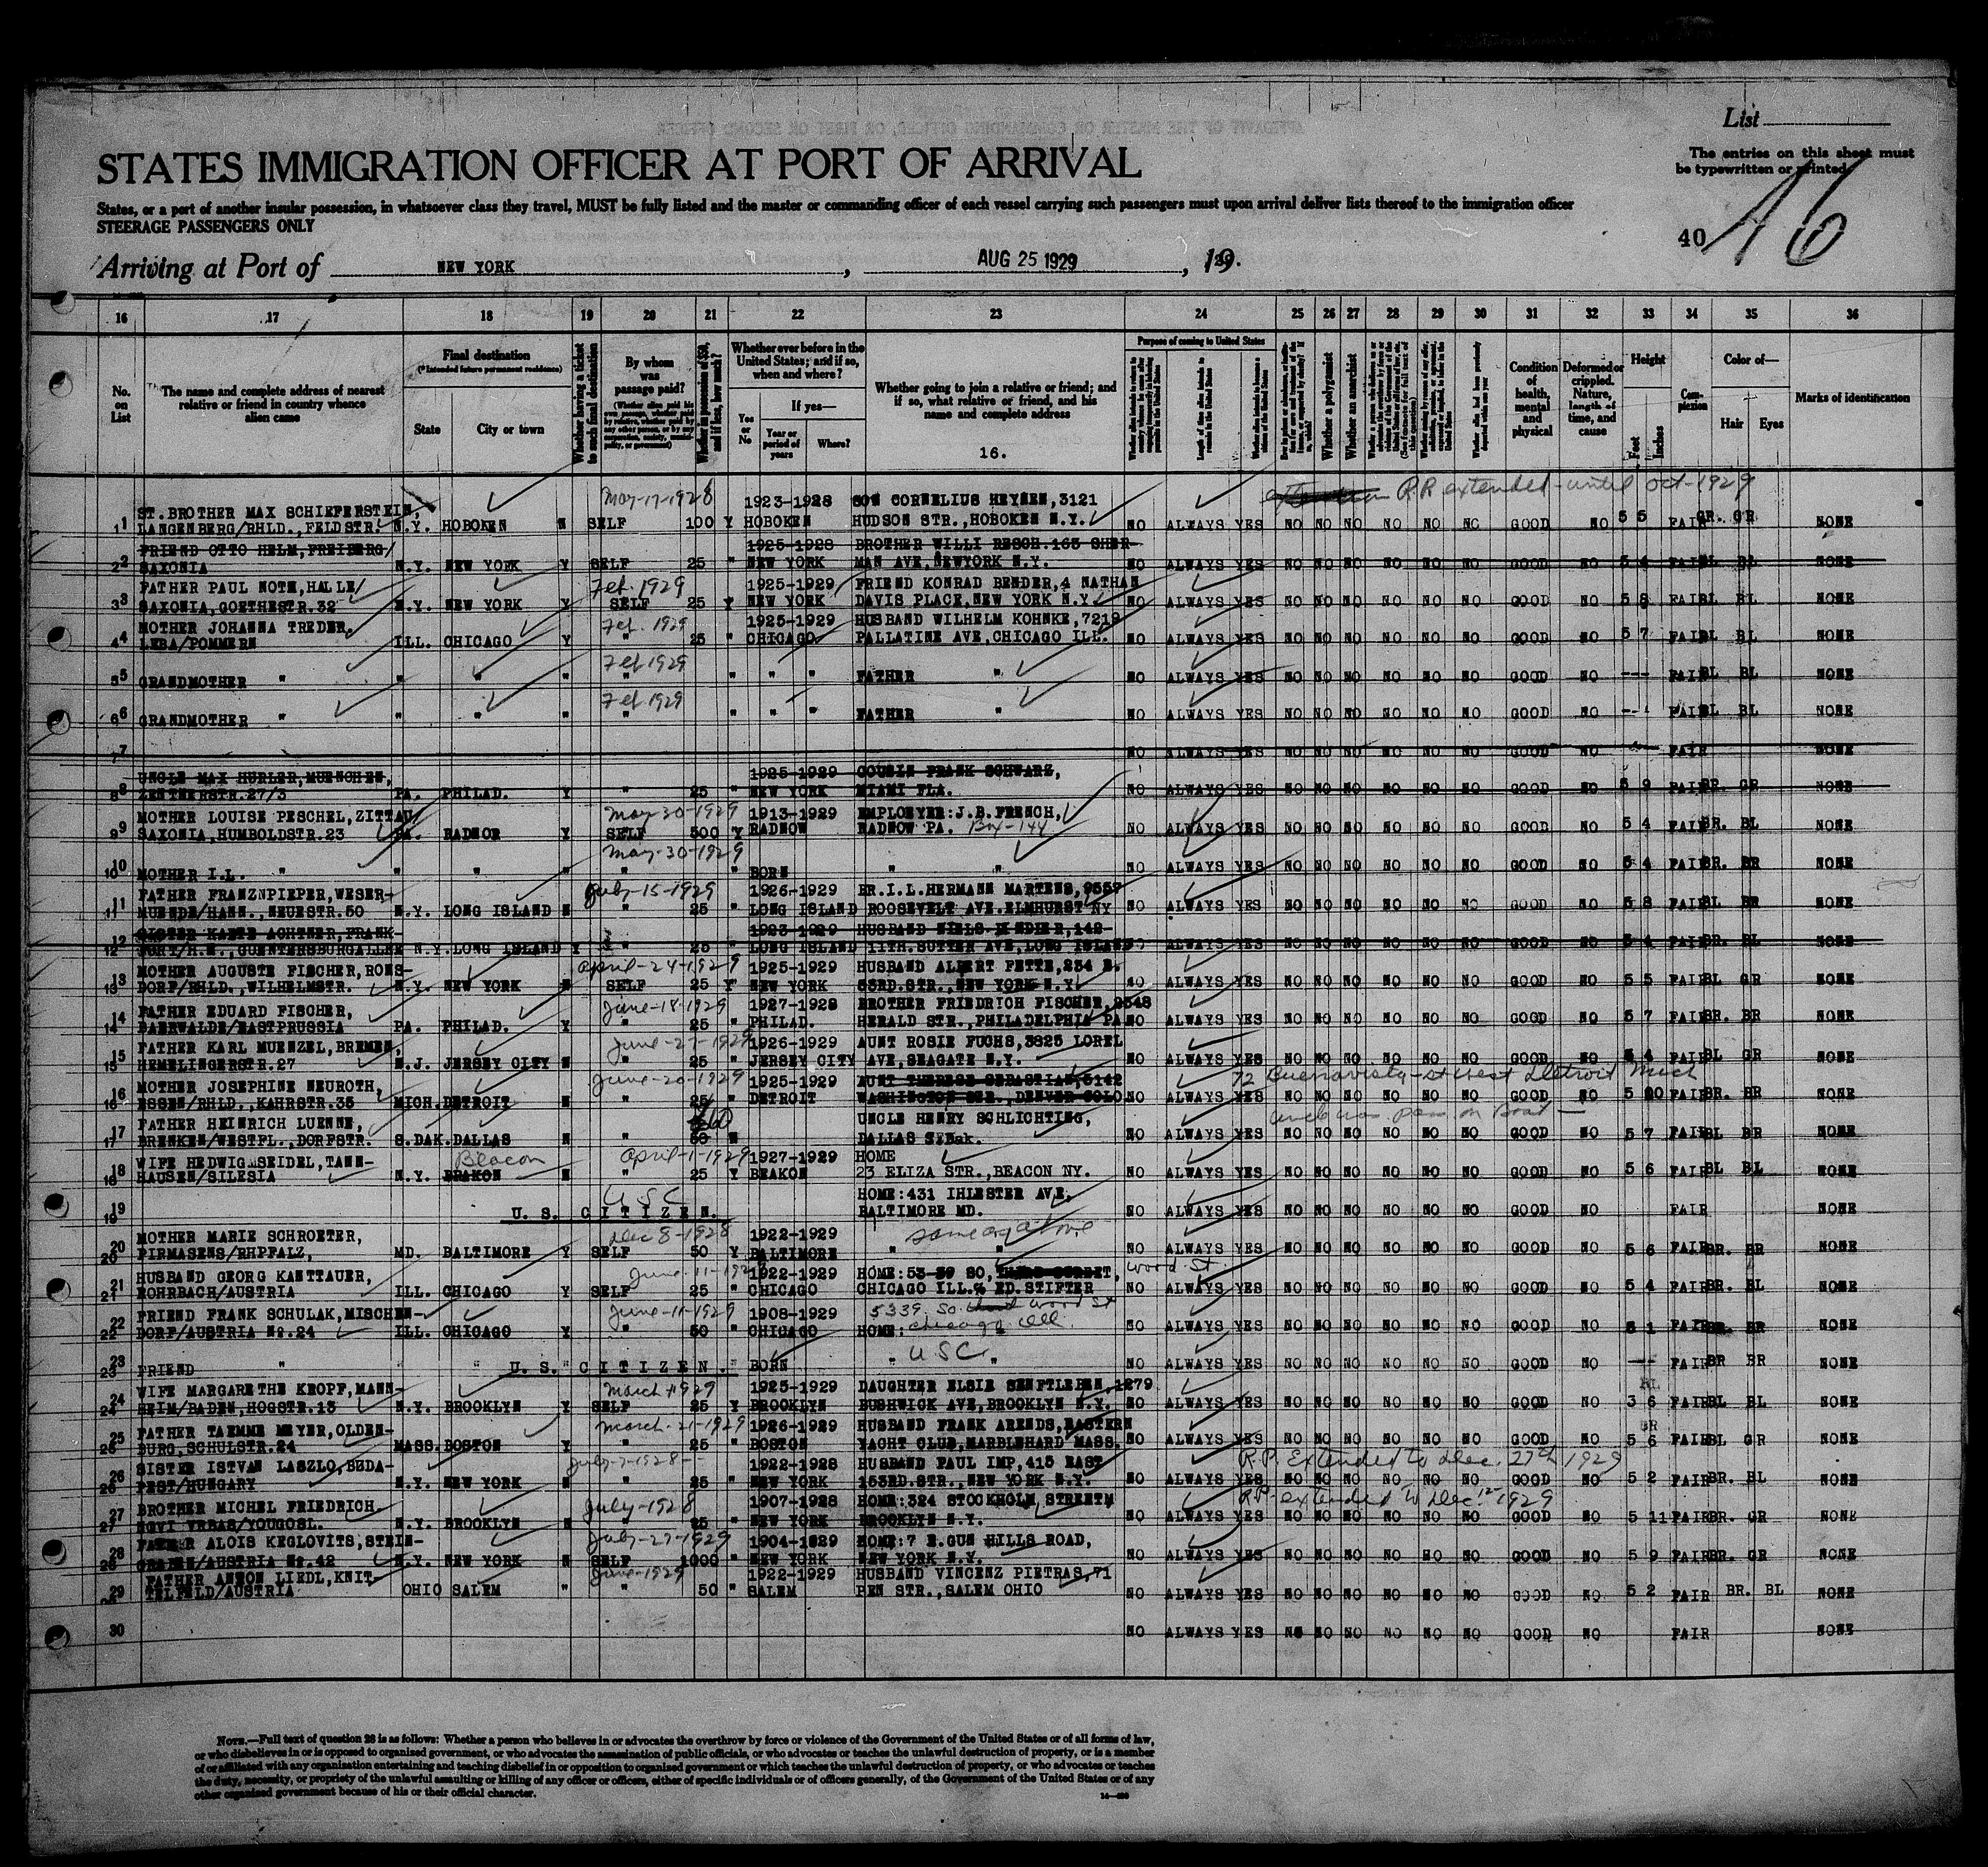 List
STATES IMMIGRATION OFFICER AT PORT OF ARRIVAL
The entries on this sheet must
be typewritten or printed
States, or a port of another insular possession, in whatsoever class they travel, MUST be fully listed and the master or commanding officer of each vessel carrying such passengers must upon arrival deliver lists thereof to the immigration officer
STEERAGE PASSENGERS ONLY
40 A6
Arriving at Port of NEW YORK, AUG 25 1929, 19
16 17 18 19 20 21 22 23 24 25 26 27 28 29 30 31 32 33 34 35 36
No. on List
The name and complete address of nearest relative or friend in country whence alien came
Final destination
(*Intended future permanent residence)
State City or town
Whether having a ticket to such final destination
By whom was passage paid?
Whether in possession of $50, and if less, how much?
Whether ever before in the United States; and if so, when and where?
Yes or No
If yes—
Year or period of years Where?
Whether going to join a relative or friend; and if so, what relative or friend, and his name and complete address
16.
Purpose of coming to United States
Whether a polygamist
Whether an anarchist
Condition of health, mental and physical
Deformed or crippled. Nature, length of time, and cause
Height
Feet Inches
Complexion
Color of—
Hair Eyes
Marks of identification
May-17-1928 1923-1928 SON CORNELIUS HEYNEN, 3121 R.P. extended until Oct-1929
ST.BROTHER MAX SCHIEFERSTEIN,
1 LANGENBERG/RHLD.,FELDSTR. N.Y. HOBOKEN N SELF 100 Y HOBOKEN HUDSON STR.,HOBOKEN N.Y. NO ALWAYS YES NO NO NO NO NO NO GOOD NO 5 5 FAIR GR. GR NONE
FRIEND OTTO HELM,FREIBERG/ 1925-1928 BROTHER WILLI RESCH.165 SHER-
2 SAXONIA N.Y. NEW YORK Y SELF 25 " NEW YORK MAN AVE,NEWYORK N.Y. NO ALWAYS YES NO NO NO NO NO NO GOOD NO 5 4 FAIR BL BL NONE
FATHER PAUL NOTH,HALLE/ Feb. 1929 1925-1929 FRIEND KONRAD BENDER,4 NATHAN
3 SAXONIA,GOETHESTR.32 N.Y. NEW YORK Y SELF 25 Y NEW YORK DAVIS PLACE,NEW YORK N.Y. NO ALWAYS YES NO NO NO NO NO NO GOOD NO 5 8 FAIR BL BL NONE
MOTHER JOHANNA TREDER, Feb. 1929 1925-1929 HUSBAND WILHELM KOHNKE,7219
4 LEBA/POMMERN ILL. CHICAGO Y " 25 " CHICAGO PALLATINE AVE,CHICAGO ILL. NO ALWAYS YES NO NO NO NO NO NO GOOD NO 5 7 FAIR BL BL NONE
Feb 1929
5 GRANDMOTHER " " " " " " " " FATHER " NO ALWAYS YES NO NO NO NO NO NO GOOD NO --- FAIR BL BL NONE
Feb 1929
6 GRANDMOTHER " " " " " " " " FATHER " NO ALWAYS YES NO NO NO NO NO NO GOOD NO --- FAIR BL BL NONE
7 NO ALWAYS YES NO NO NO NO NO NO GOOD NO FAIR NONE
UNCLE MAX HURLER,MUENCHEN, 1925-1929 COUSIN FRANK SCHWARZ,
8 ZENTNERSTR.27/3 PA. PHILAD. Y " 25 " NEW YORK MIAMI FLA. NO ALWAYS YES NO NO NO NO NO NO GOOD NO 5 9 FAIR BR. GR NONE
MOTHER LOUISE PESCHEL,ZITTAU/ May-30-1929 1913-1929 EMPLOYER:J.B.FRENCH,
9 SAXONIA,HUMBOLDSTR.23 PA. RADNOR Y SELF 500 Y RADNOW RADNOW PA. Box-144 NO ALWAYS YES NO NO NO NO NO NO GOOD NO 5 4 FAIR BR. BL NONE
May-30-1929
10 MOTHER I.L. " " " " " " BORN " " NO ALWAYS YES NO NO NO NO NO NO GOOD NO 5 4 FAIR BR. BR NONE
FATHER FRANZ PIEPER,WESER- July-15-1929 1926-1929 BR.I.L.HERMANN MARTENS,9557
11 MUENDE/HANN.,NEUESTR.50 N.Y. LONG ISLAND N " 25 " LONG ISLAND ROOSEVELT AVE.ELMHURST NY NO ALWAYS YES NO NO NO NO NO NO GOOD NO 5 8 FAIR BL BR NONE
SISTER KAETE ACHTNER,FRANK- 1923-1929 HUSBAND NIELS 142-
12 FURT/H.N.,GUENTERSBURGALLEE N.Y. LONG ISLAND Y " 25 " LONG ISLAND 11TH.SUTTER AVE,LONG ISLAND NO ALWAYS YES NO NO NO NO NO NO GOOD NO 5 4 FAIR BR. BL NONE
MOTHER AUGUSTE FISCHER,RONS- April-24-1929 1925-1929 HUSBAND ALBERT FETTE,234 E.
13 DORF/RHLD.,WILHELMSTR. N.Y. NEW YORK N SELF 25 Y NEW YORK 53RD.STR.,NEW YORK N.Y. NO ALWAYS YES NO NO NO NO NO NO GOOD NO 5 5 FAIR BL GR NONE
FATHER EDUARD FISCHER, June-18-1929 1927-1928 BROTHER FRIEDRICH FISCHER,2548
14 BAERWALDE/EASTPRUSSIA PA. PHILAD. Y " 25 " PHILAD. HERALD STR.,PHILADELPHIA PA NO ALWAYS YES NO NO NO NO NO NO GOOD NO 5 7 FAIR BR. BR NONE
FATHER KARL MUENZEL,BREMEN, June-27-1929 1926-1929 AUNT ROSIE FUCHS,3825 LOREL
15 HEMELINGERSTR.27 N.J. JERSEY CITY N " 25 " JERSEY CITY AVE,SEAGATE N.Y. NO ALWAYS YES NO NO NO NO NO NO GOOD NO 5 4 FAIR BL GR NONE
MOTHER JOSEPHINE NEUROTH, June-20-1929 1925-1929 AUNT THERESE SEBASTIAN,5142 72 Buenavista-st west Detroit Mich
16 ESSEN/RHLD.,KAHRSTR.35 MICH. DETROIT N " 25 " DETROIT WASHINGTON STR.,DENVER COLO NO ALWAYS YES NO NO NO NO NO NO GOOD NO 5 FAIR BR. BR NONE
FATHER HEINRICH LUENNE, UNCLE HENRY SCHLICHTING, uncle was pass. on Boat
17 BRENKEN/WESTFL.,DORFSTR. S.DAK. DALLAS N " 50 N DALLAS S.Dak. NO ALWAYS YES NO NO NO NO NO NO GOOD NO 5 7 FAIR BL BR NONE
WIFE HEDWIG SEIDEL,TANN- Beacon April-1-1929 1927-1929 HOME
18 HAUSEN/SILESIA N.Y. BEAKON N " 25 Y BEAKON 23 ELIZA STR.,BEACON NY. NO ALWAYS YES NO NO NO NO NO NO GOOD NO 5 6 FAIR BL BL NONE
USC HOME:431 IHLESTER AVE,
19 U. S. CITIZEN. BALTIMORE MD. NO ALWAYS YES NO NO NO NO NO NO GOOD NO FAIR NONE
MOTHER MARIE SCHROETER, Dec 8-1928 1922-1929 same as above
20 PIRMASENS/RHPFALZ, MD. BALTIMORE Y SELF 50 Y BALTIMORE " " NO ALWAYS YES NO NO NO NO NO NO GOOD NO 5 6 FAIR BR. BR NONE
HUSBAND GEORG KANTTAUER, June-11-1929 1922-1929 HOME:53 39 SO, wood st
21 ROHRBACH/AUSTRIA ILL. CHICAGO Y SELF 25 " CHICAGO CHICAGO ILL.% ED.STIFTER NO ALWAYS YES NO NO NO NO NO NO GOOD NO 5 4 FAIR BR. BL NONE
FRIEND FRANK SCHULAK,MISCHEN- June-11-1929 1908-1929 5339 So. wood St
22 DORF/AUSTRIA No.24 ILL. CHICAGO Y " 50 " CHICAGO HOME: Chicago Ill. NO ALWAYS YES NO NO NO NO NO NO GOOD NO 5 1 FAIR BR. BR NONE
23 FRIEND " " " U. S. CITIZEN. " BORN " USC " NO ALWAYS YES NO NO NO NO NO NO GOOD NO --- FAIR BR BR NONE
WIFE MARGARETHE KROPF,MANN- March 1929 1925-1929 DAUGHTER ELSIE SENFTLEBEN,1279 BL
24 HEIM/BADEN,HOGSTR.13 N.Y. BROOKLYN Y SELF 25 Y BROOKLYN BUSHWICK AVE,BROOKLYN N.Y. NO ALWAYS YES NO NO NO NO NO NO GOOD NO 3 6 FAIR BL BL NONE
FATHER TAEMME MEYER,OLDEN- March-21-1929 1926-1929 HUSBAND FRANK ARENDS,EASTERN GR
25 BURG,SCHULSTR.24 MASS. BOSTON Y " 25 " BOSTON YACHT CLUB,MARBLEHARD MASS. NO ALWAYS YES NO NO NO NO NO NO GOOD NO 5 6 FAIR BL GR NONE
SISTER ISTVAN LASZLO,BUDA- July-7-1928 1922-1928 HUSBAND PAUL IMP,415 EAST R.P. Extended to Dec. 27th 1929
26 PEST/HUNGARY N.Y. NEW YORK N " 25 " NEW YORK 153RD.STR.,NEW YORK N.Y. NO ALWAYS YES NO NO NO NO NO NO GOOD NO 5 2 FAIR BR. BL NONE
BROTHER MICHEL FRIEDRICH July-1928 1907-1928 HOME:324 STOCKHOLM STREET R.P. extended to Dec. 1929
27 NOVI VRBAS/YOUGOSL. N.Y. BROOKLYN N " 25 " NEW YORK BROOKLYN N.Y. NO ALWAYS YES NO NO NO NO NO NO GOOD NO 5 11 FAIR BR. GR NONE
FATHER ALOIS KEGLOVITS,STEIN- July-27-1929 1904-1929 HOME:7 E.GUN HILLS ROAD,
28 GRABEN/AUSTRIA No.42 N.Y. NEW YORK N SELF 1000 " NEW YORK NEW YORK N.Y. NO ALWAYS YES NO NO NO NO NO NO GOOD NO 5 9 FAIR BR. GR NONE
FATHER ANTON LIEDL,KNIT- June-1929 1922-1929 HUSBAND VINCENZ PIETRAS,71
29 TELFELD/AUSTRIA OHIO SALEM " " 50 " SALEM PEN STR.,SALEM OHIO NO ALWAYS YES NO NO NO NO NO NO GOOD NO 5 2 FAIR BR. BL NONE
30 NO ALWAYS YES NO NO NO NO NO NO GOOD NO FAIR NONE
NOTE.—Full text of question 28 is as follows: Whether a person who believes in or advocates the overthrow by force or violence of the Government of the United States or of all forms of law,
or who disbelieves in or is opposed to organized government, or who advocates the assassination of public officials, or who advocates or teaches the unlawful destruction of property, or is a member
of or affiliated with any organization entertaining and teaching disbelief in or opposition to organized government or which teaches the unlawful destruction of property, or who advocates or teaches
the duty, necessity, or propriety of the unlawful assaulting or killing of any officer or officers, either of specific individuals or of officers generally, of the Government of the United States or of any
other organized government because of his or their official character.